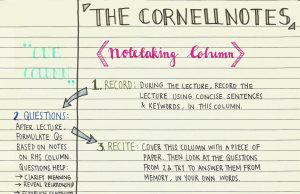 THE CORNELL NOTES
"CUE COLUMN"
Notetaking Column
1. RECORD: DURING THE LECTURE, RECORD THE
LECTURE USING CONCISE SENTENCES
& KEYWORDS, IN THIS COLUMN.
2. QUESTIONS:
AFTER LECTURE,
FORMULATE QS
BASED ON NOTES
ON RHS COLUMN.
QUESTIONS HELP:
→ CLARIFY MEANING
→ REVEAL RELATIONSHIP
→ ESTABLISH CONTINUITY
3. RECITE: COVER THIS COLUMN WITH A PIECE OF
PAPER. THEN LOOK AT THE QUESTIONS
FROM 2 & TRY TO ANSWER THEM FROM
MEMORY, IN YOUR OWN WORDS.